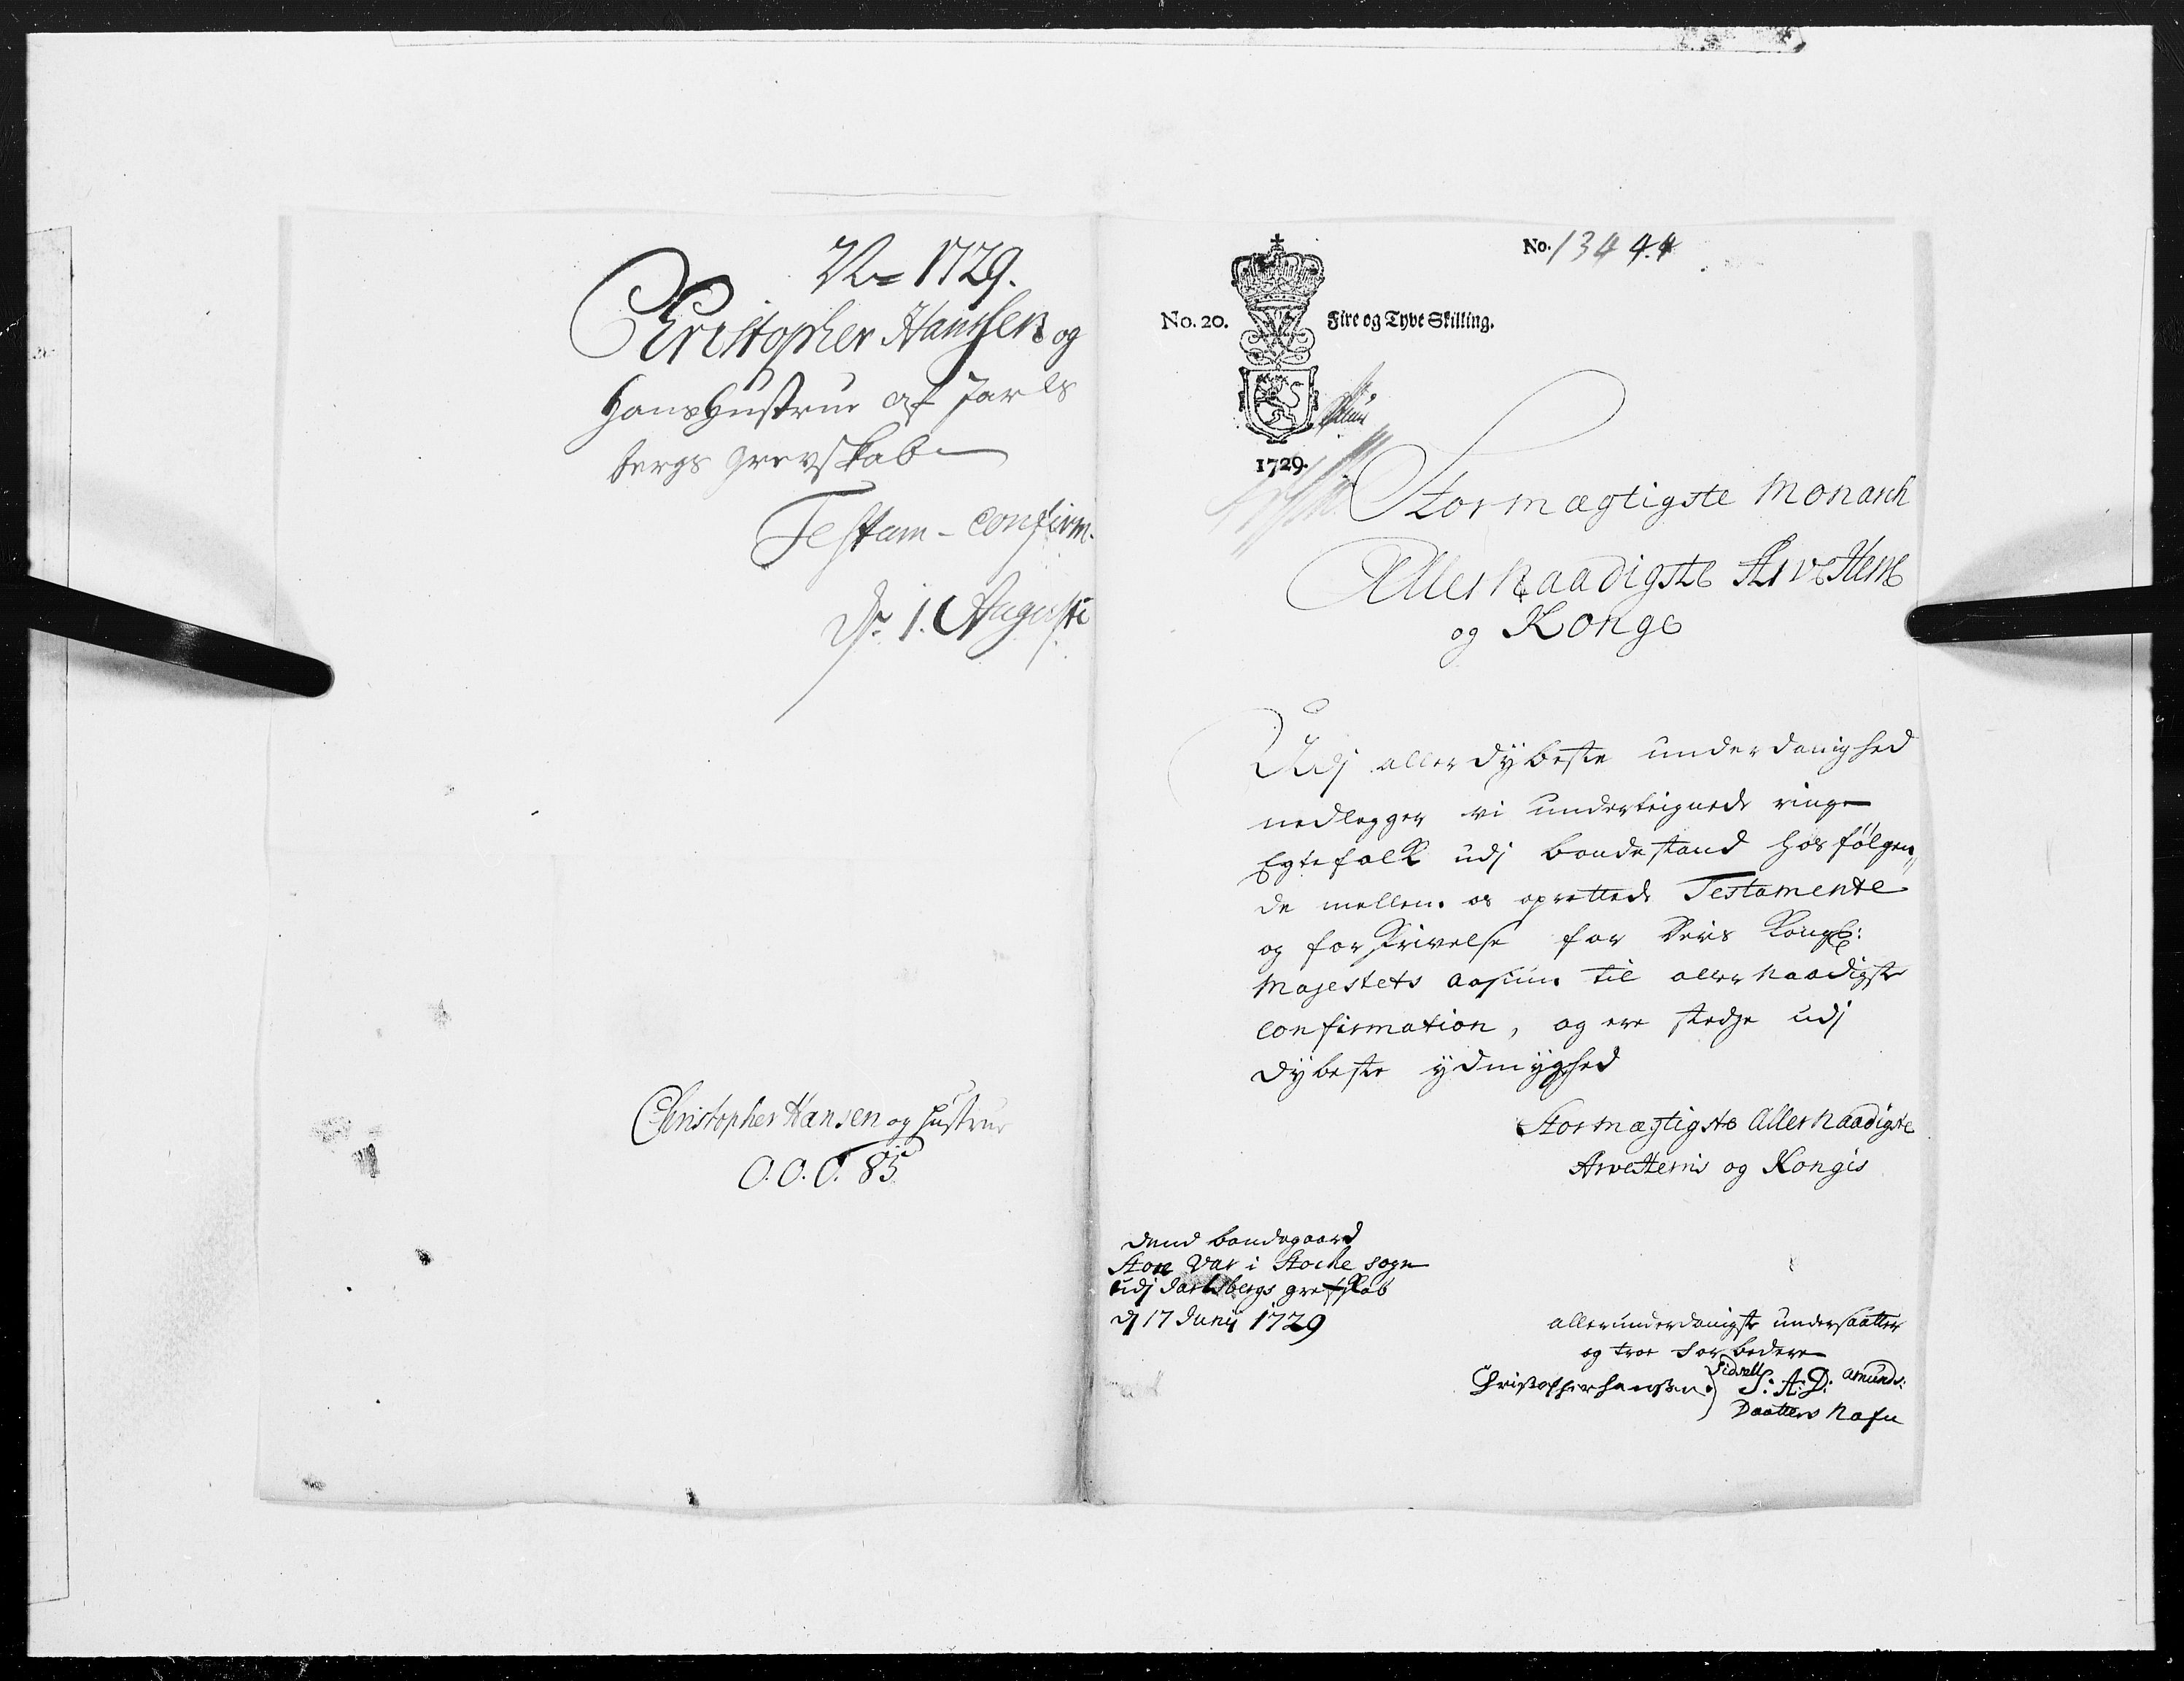 1729.
Christopher Hanssen og
Hans Hustrue af Jarls
bergs Grevskab
Testam-confirm.
1. Augusti
Christopher Hansen og Hustrue
O.O.O. 85
No. 13444
No. 20. Fire og Tyve Skilling.
1729.
Stormægtigste Monarch
Allernaadigste ArveHerre
og Konge
Udj allerdybeste underdanighed
nedlegger vi underteignede ringe
Egtefolk udj bondestand hosfølgen„
de mellem os oprettede Testamente
og forskrivelse for Deris Kongl:
Majestets aasiun til allernaadigste
confirmation, og ere stedze udj
dybeste ydmyghed
Stormægtigste Allernaadigste
ArveHerris og Kongis
bondegaard
Store Var i Stocke sogn
udj Jarlsbergs grefskab
dj 17 Junij 1729
allerunderdanigste undersaatter
og troe forbedere
Christopher Hansen. Sidsell S: A: D: Amunds:
Daatters Nafn